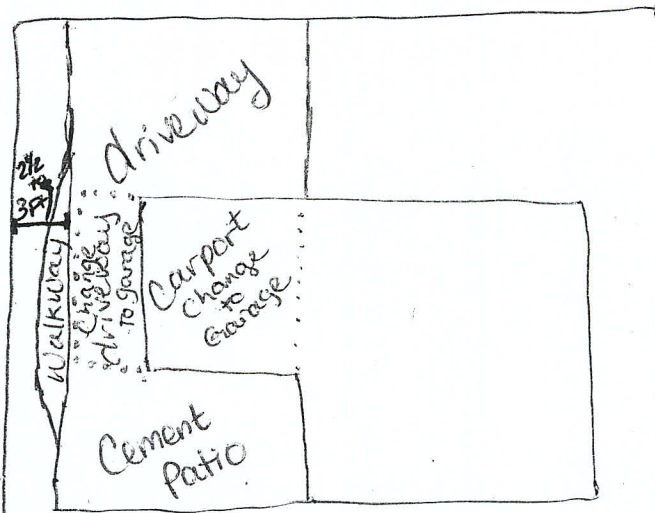 driveway
2 1/2
to
3 Ft
Walkway
Change
driveway
To garage
Carport
Change
to
Garage
Cement
Patio